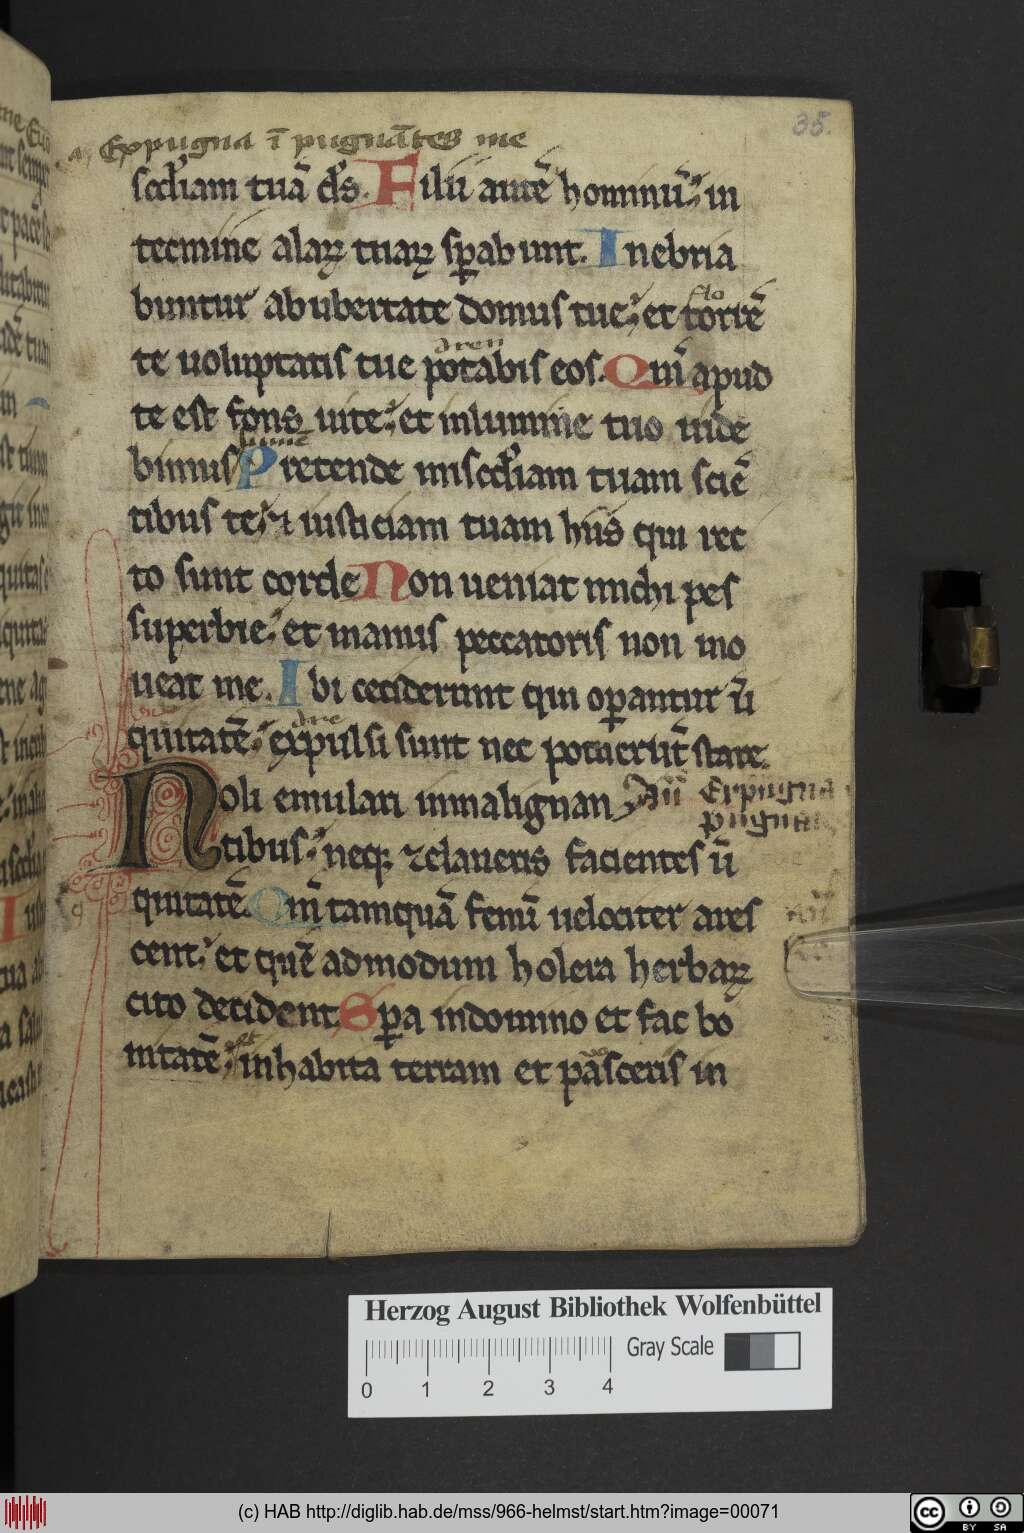 35.
a Expugna ī pugnātes me
scđiam tuā đs. Filii autē hominū: in
tecmine alaꝝ tuaꝝ sꝑabunt. Inebria
buntur ab ubertate domus tue: et torrē
te uoluptatis tue potabis eos. Qm̄ apud
te est fons uite: et inlumine tuo uide
bimus Pretende miscđiam tuam sciē
tibus te: ⁊ iusticiam tuam hiis qui rec
to sunt corde Non ueniat michi pes
superbie: et manus peccatoris non mo
ueat me. Ibi ceciderunt qui oꝑantur ī
quitatē: expulsi sunt nec potuerūt stare.
Noli emulari inmalignan
Expugna
pugnan
tibus: neq; zelaueris facientes ī
quitatē. Qm̄ tamquā fenū uelociter ares
cent: et quē admodum holera herbaꝝ
cito decident Sꝑa indomino et fac bo
nitatē: inhabita terram et pasceris in
Herzog August Bibliothek Wolfenbüttel
Gray Scale
0 1 2 3 4
(c) HAB http://diglib.hab.de/mss/966-helmst/start.htm?image=00071
cc BY SA